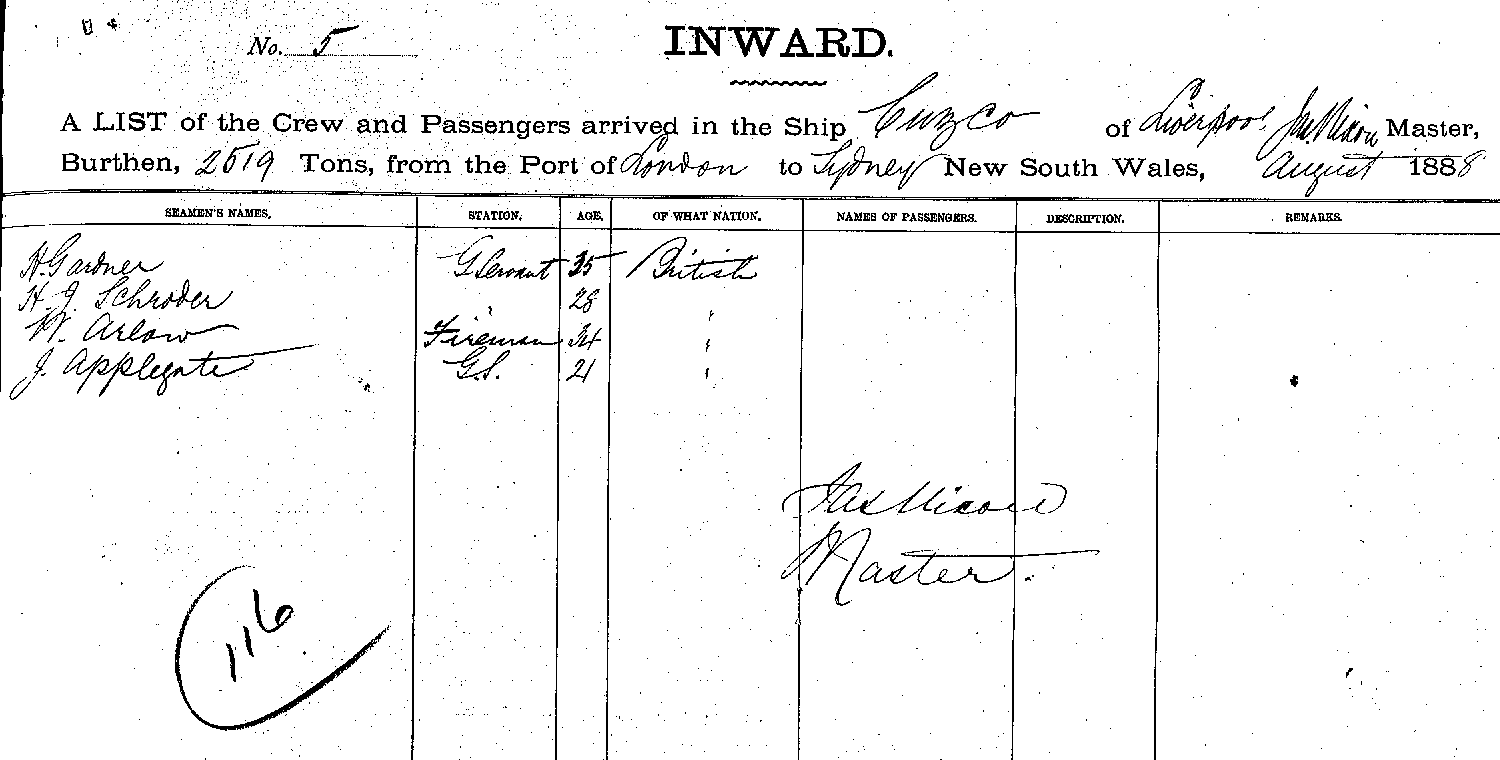 No. 5
INWARD.
A LIST of the Crew and Passengers arrived in the Ship Cuzco of Liverpool, Jas. Nixon Master,
Burthen, 2519 Tons, from the Port of London to Sydney New South Wales, August 1888
SEAMEN'S NAMES. STATION. AGE. OF WHAT NATION. NAMES OF PASSENGERS. DESCRIPTION. REMARKS.
H. Gardner G Servant 35 British
H. J. Schroder " 28 "
W. Arlow Fireman 34 "
J. Applegate G.S. 21 "
Jas Nixon
Master.
116